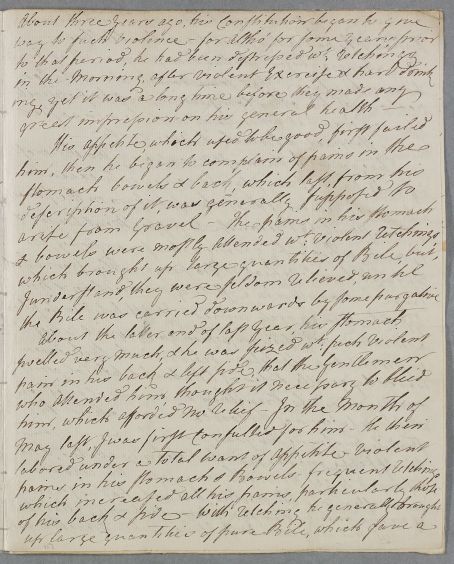 About three years ago, his Constitution began to give
way to such violence - for altho' for some years prior
to that period, he had been distressed wt. retchings
in the Morning after violent Exercise & hard drink
ing, yet it was a long time before they made any
great impression on his general health -
His appetite which used to be good, first failed
him, then he began to complain of pains in the
stomach bowels & back, which last, from his
description of it, was generally supposed to
arise from Gravel - The pains in his stomach
& bowels were mostly attended wt. violent retchings
which brought up large quantities of Bile, but,
I understand, they were seldom relieved, until
the Bile was carried downwards by some purgative
About the latter end of last year, his stomach
swelled very much, & he was seized wt. such violent
pain in his back & left side, that the Gentlemen
who attended him, thought it necessary to bleed
him, which afforded no relief - In the Month of
May last, I was first consulted for him - he then
labored under a total want of appetite violent
pains in his stomach & Bowels - frequent retching
which increased all his pains, particularly those
of his back & side - with retching he generally brought
up large quantities of pure Bile, which gave a